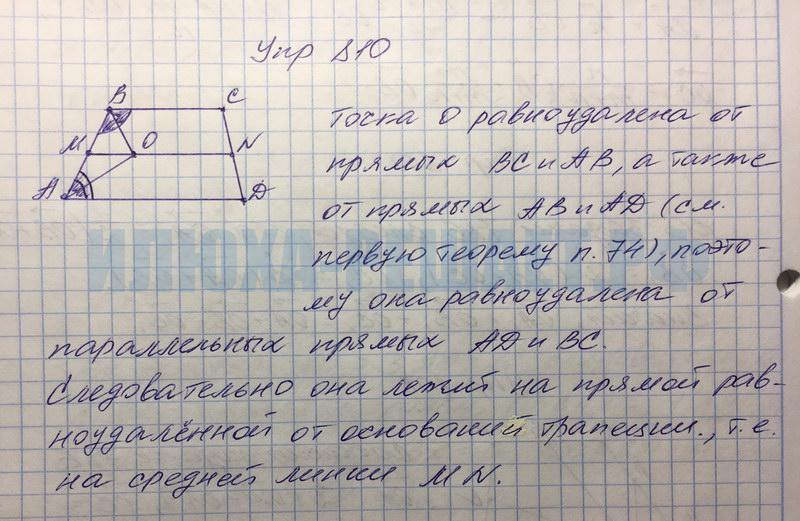 Упр 810
B C
M O N
A D
Точка O равноудалена от
прямых BC и AB, а также
от прямых AB и AD (см.
первую теорему п. 74), поэто-
му она равноудалена от
параллельных прямых AD и BC.
Следовательно она лежит на прямой рав-
ноудалённой от оснований трапеции., т.е.
на средней линии MN.